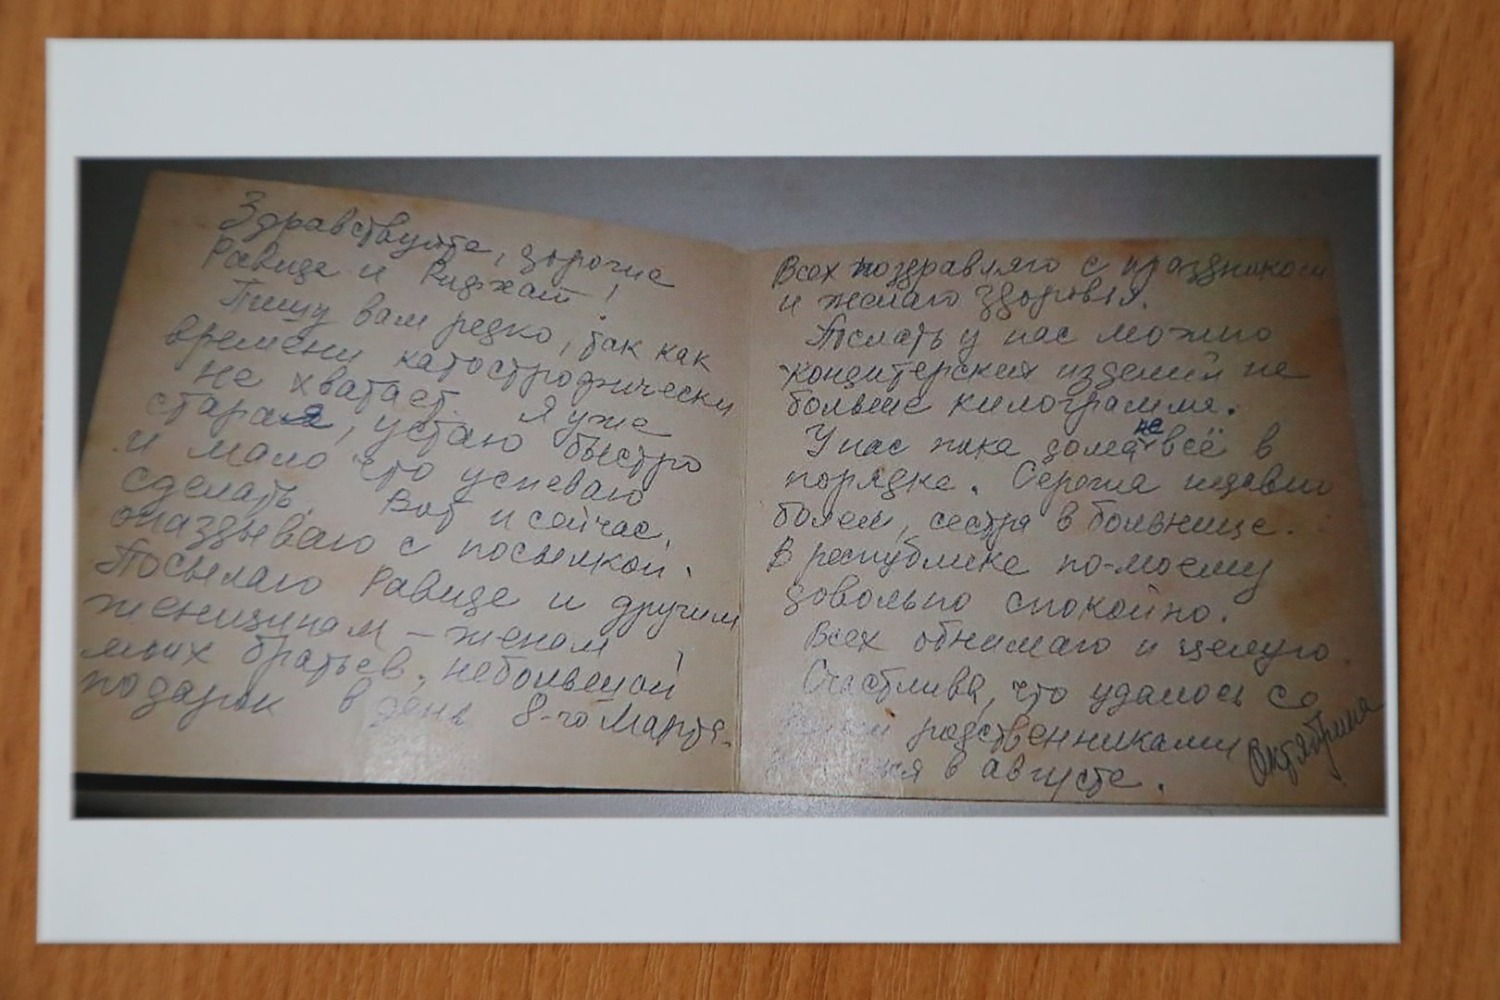 Здравствуйте, дорогие
Равица и Ридхат!
Пишу вам редко, так как
времени катострофически
не хватает. Я уже
старая, устаю быстро
и мало что успеваю
сделать. Вот и сейчас,
опаздываю с посылкой.
Посылаю Равице и другим
женщинам – женам
моих братьев, небольшой
подарок в день 8-го Марта.
Всех поздравляю с праздником
и желаю здоровья.
Послать у нас можно
кондитерских изделий не
больше килограмма.
У нас пока дома не всё в
порядке. Сережа недавно
болел, сестра в больнице.
В республике по-моему
довольно спокойно.
Всех обнимаю и целую.
Счастлива, что удалось со
родственниками
в августе.
Октябрина